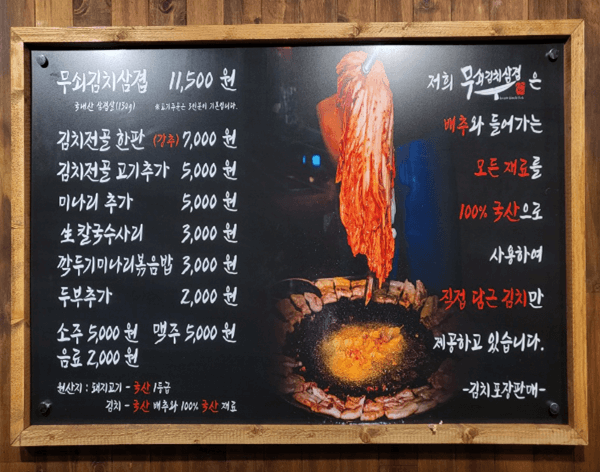 무쇠김치삼겹 11,500 원
국내산 삼겹살(150g) ※고기주문은 3인분이 기본입니다.
김치전골 한판 (강추) 7,000 원
김치전골 고기추가 5,000 원
미나리 추가 5,000 원
生 칼국수사리 3,000 원
깍두기미나리볶음밥 3,000 원
두부추가 2,000 원
소주 5,000 원 맥주 5,000 원
음료 2,000 원
원산지 : 돼지고기 - 국산 1등급
김치 - 국산 배추와 100% 국산 재료
저희 무쇠김치삼겹 은
배추와 들어가는
모든 재료를
100% 국산으로
사용하여
직접 담근 김치만
제공하고 있습니다.
-김치포장판매-